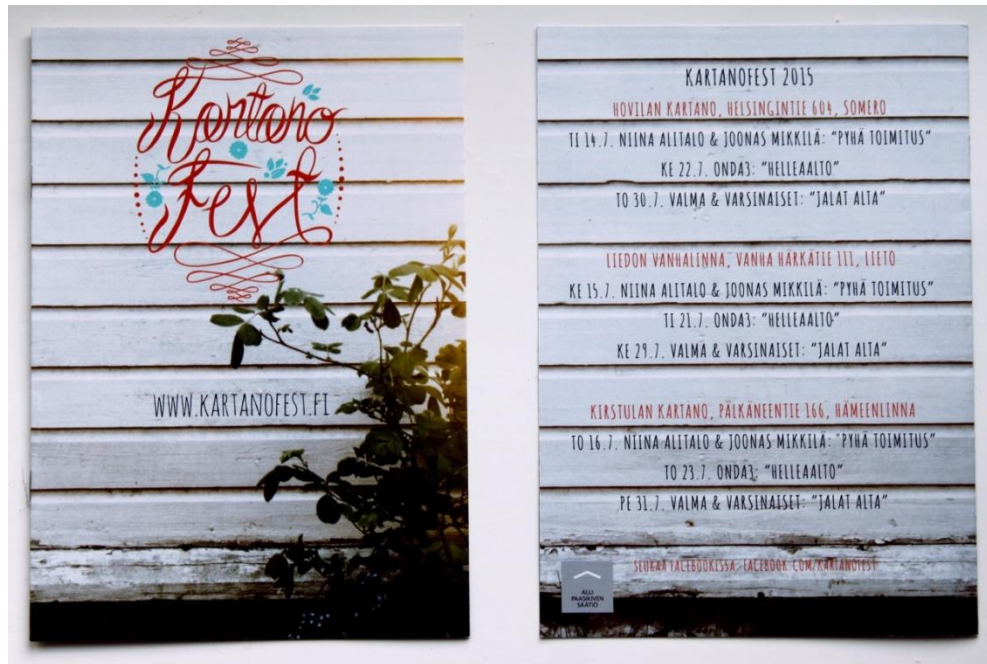 Kartano
Fest
WWW.KARTANOFEST.FI
KARTANOFEST 2015
HOVILAN KARTANO, HELSINGINTIE 604, SOMERO
TI 14.7. NIINA ALITALO & JOONAS MIKKILÄ: "PYHÄ TOIMITUS"
KE 22.7. ONDA3: "HELLEAALTO"
TO 30.7. VALMA & VARSINAISET: "JALAT ALTA"
LIEDON VANHALINNA, VANHA HÄRKÄTIE 111, LIETO
KE 15.7. NIINA ALITALO & JOONAS MIKKILÄ: "PYHÄ TOIMITUS"
TI 21.7. ONDA3: "HELLEAALTO"
KE 29.7. VALMA & VARSINAISET: "JALAT ALTA"
KIRSTULAN KARTANO, PÄLKÄNEENTIE 166, HÄMEENLINNA
TO 16.7. NIINA ALITALO & JOONAS MIKKILÄ: "PYHÄ TOIMITUS"
TO 23.7. ONDA3: "HELLEAALTO"
PE 31.7. VALMA & VARSINAISET: "JALAT ALTA"
SEURAA FACEBOOKISSA: FACEBOOK.COM/KARTANOFEST
ALLI
PAASIKIVEN
SÄÄTIÖ